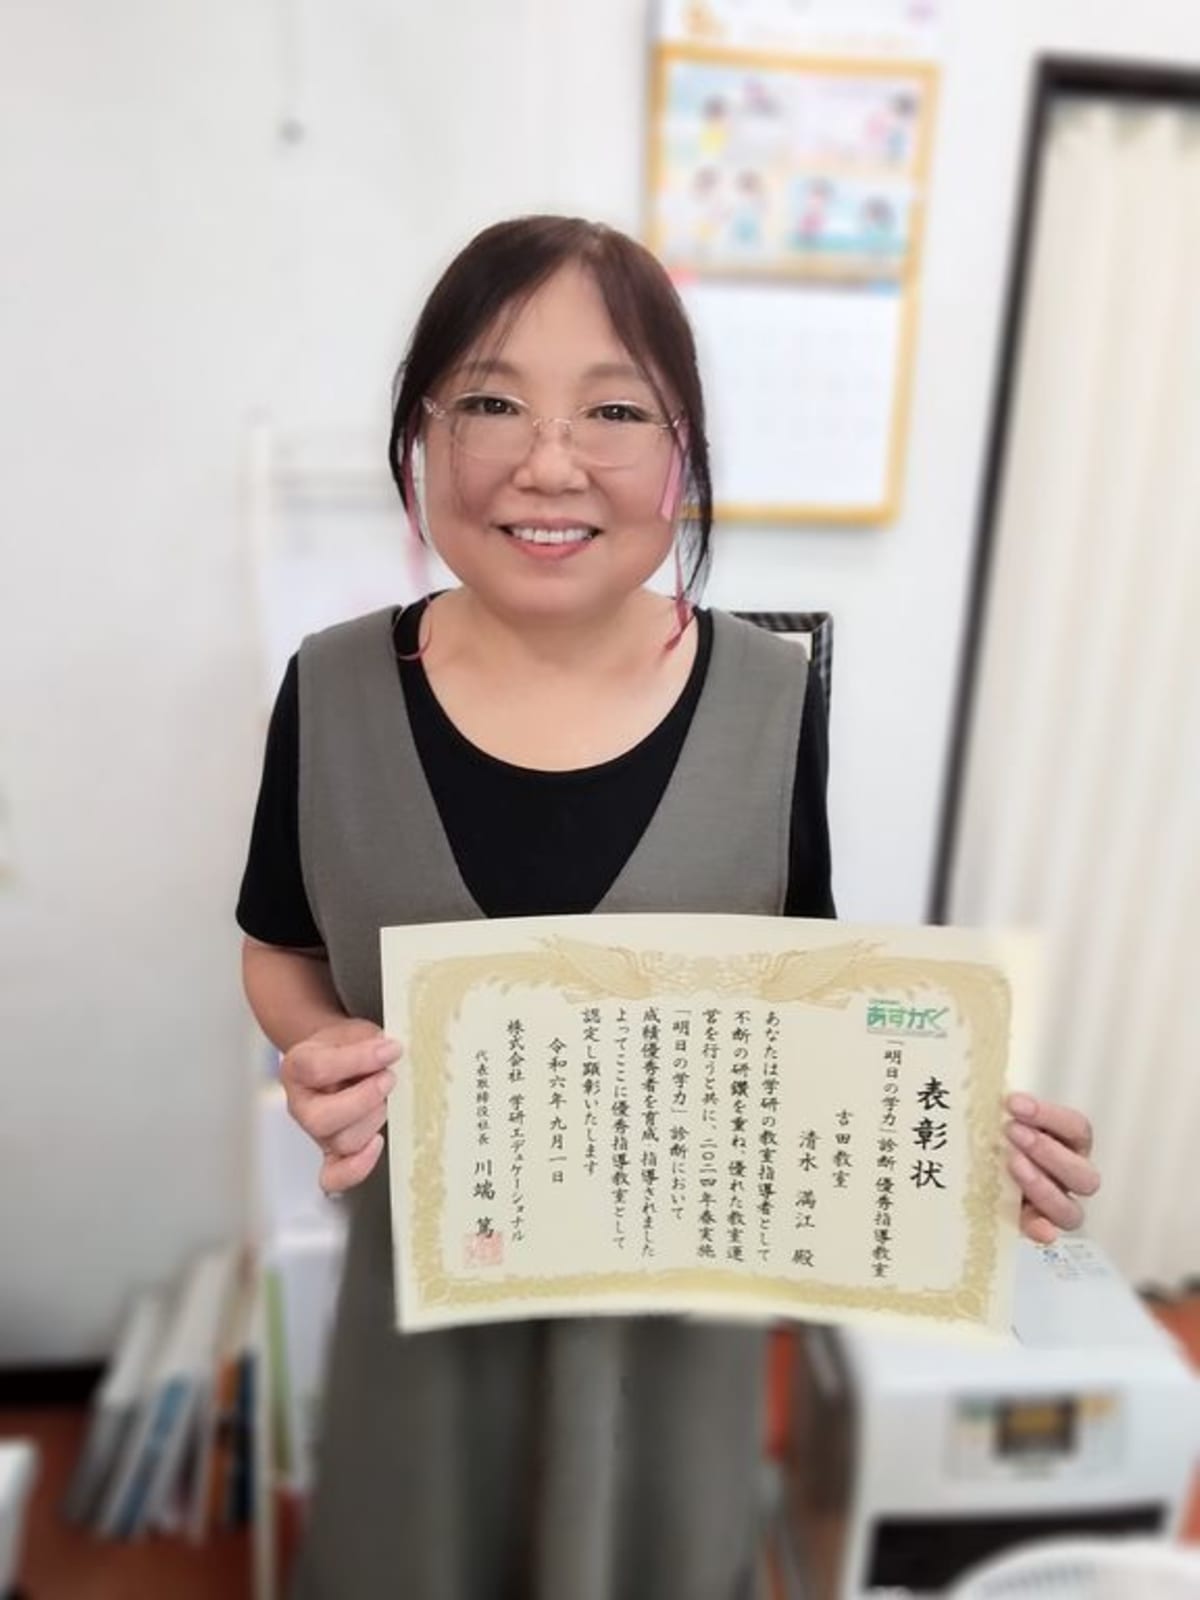 表彰状
あすがく
「明日の学力」診断 優秀指導教室
吉田教室
清水 満江 殿
あなたは学研の教室指導者として
不断の研鑽を重ね、優れた教室運
営を行うと共に、二〇二四年春実施
「明日の学力」診断において
成績優秀者を育成、指導されました
よってここに優秀指導教室として
認定し顕彰いたします
令和六年九月一日
株式会社 学研エデュケーショナル
代表取締役社長 川端 篤